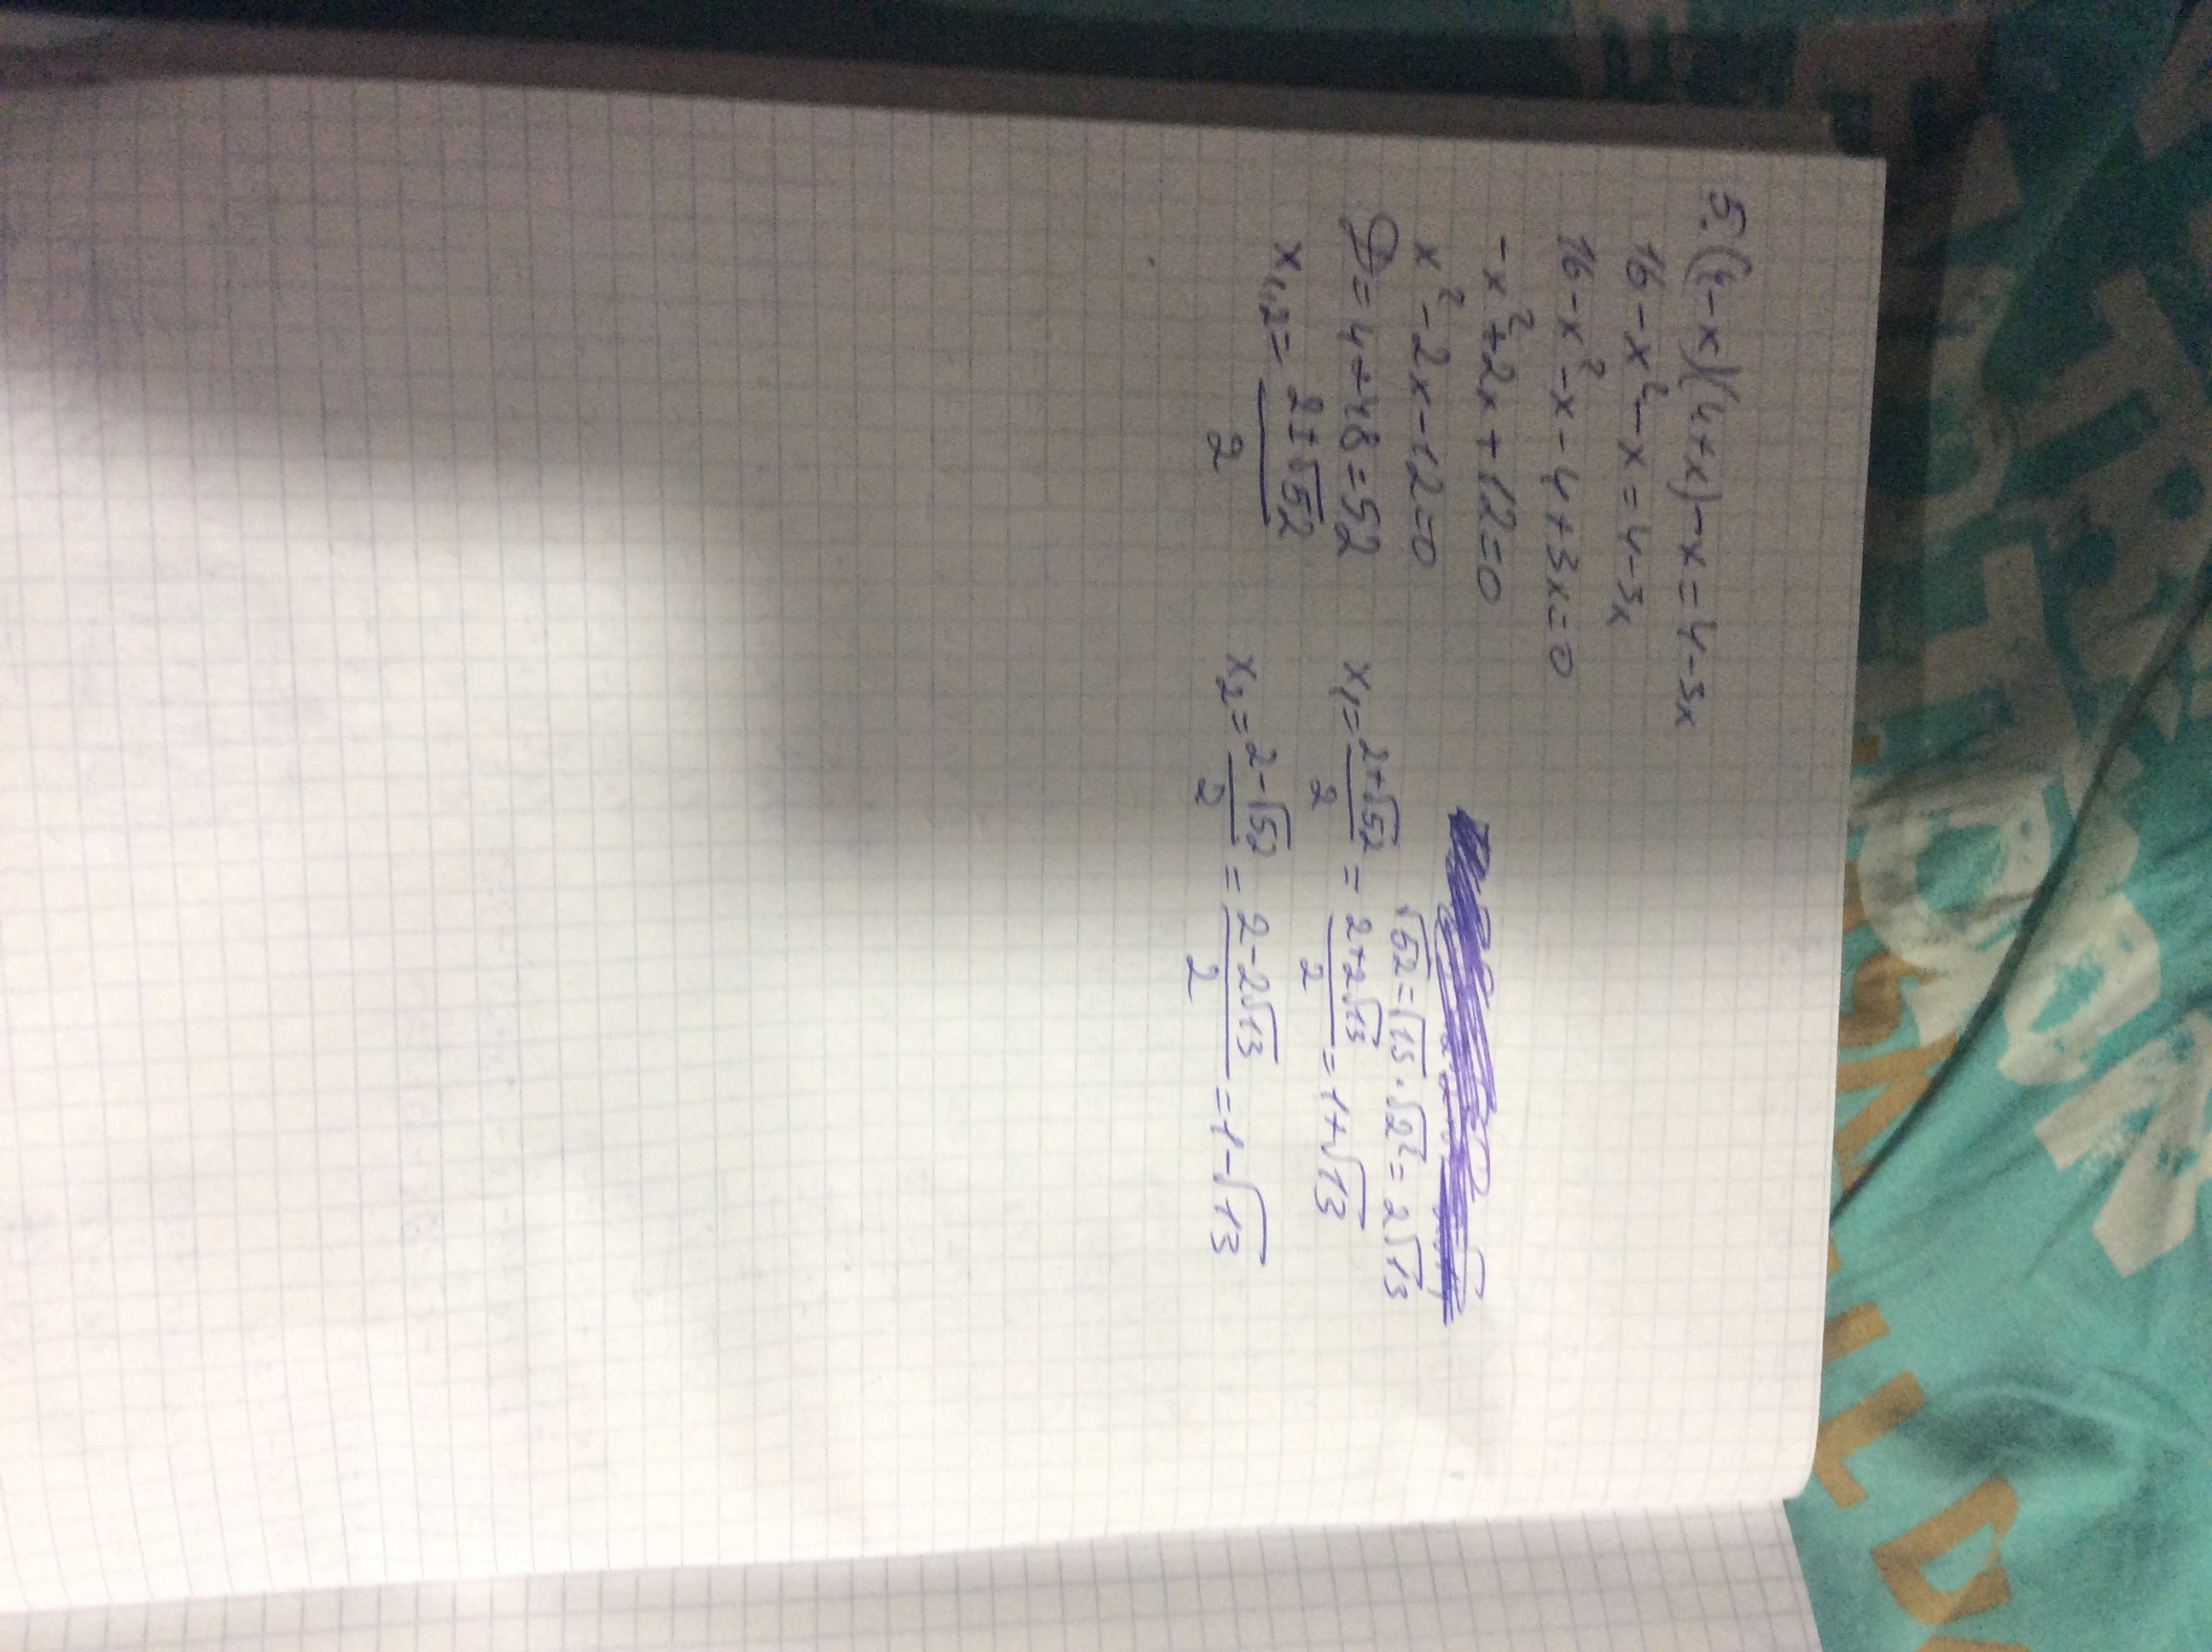 5. (4-x)(4+x)-x=4-3x
16-x²-x=4-3x
16-x²-x-4+3x=0
-x²+2x+12=0
x²-2x-12=0
D=4+48=52
x₁,₂=(2±√52)/2
√52=√13·√2²=2√13
x₁=(2+√52)/2=(2+2√13)/2=1+√13
x₂=(2-√52)/2=(2-2√13)/2=1-√13